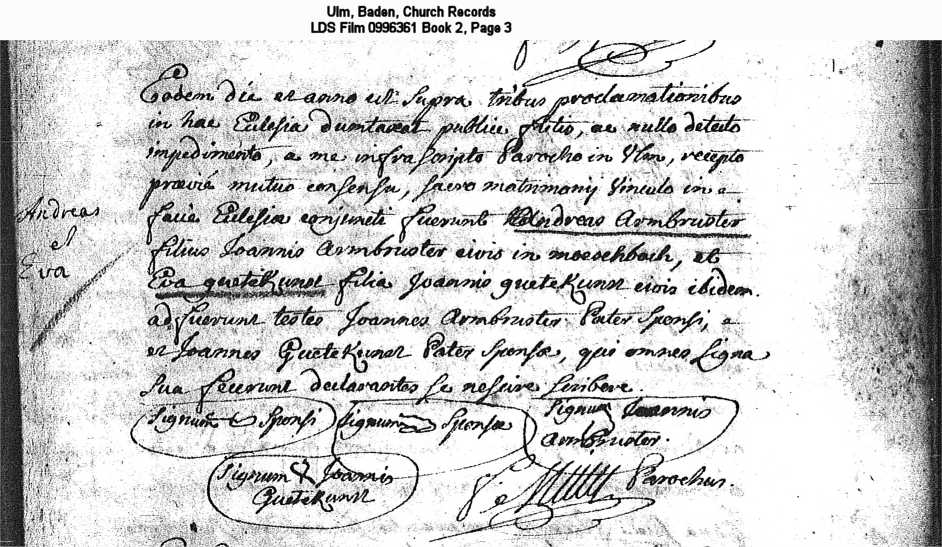 Ulm, Baden, Church Records
LDS Film 0996361 Book 2, Page 3
1.
Eodem die et anno ut supra tribus proclamationibus
in hac Eclesia dumtaxat publice factis, ac nullo detecto
impedimento, a me infrascripto Parocho in Ulm, recepto
prævie mutuo consensu, sacro matrimonij Vinculo in
facie Eclesiæ conjuncti fuerunt Andreas Armbruster
filius Joannis Armbruster civis in moeschbach, et
Eva guetekunst filia Joannis guetekunst civis ibidem.
adfuerunt testes Joannes Armbruster Pater Sponsi,
et Joannes Guetekunst Pater Sponsæ, qui omnes Signa
Sua fecerunt declarantes se nescire scribere.
Andreas
et
Eva
Signum Sponsi
Signum Sponsæ
Signum Joannis
Armbruster.
Signum Joannis
Guetekunst
Parochus.